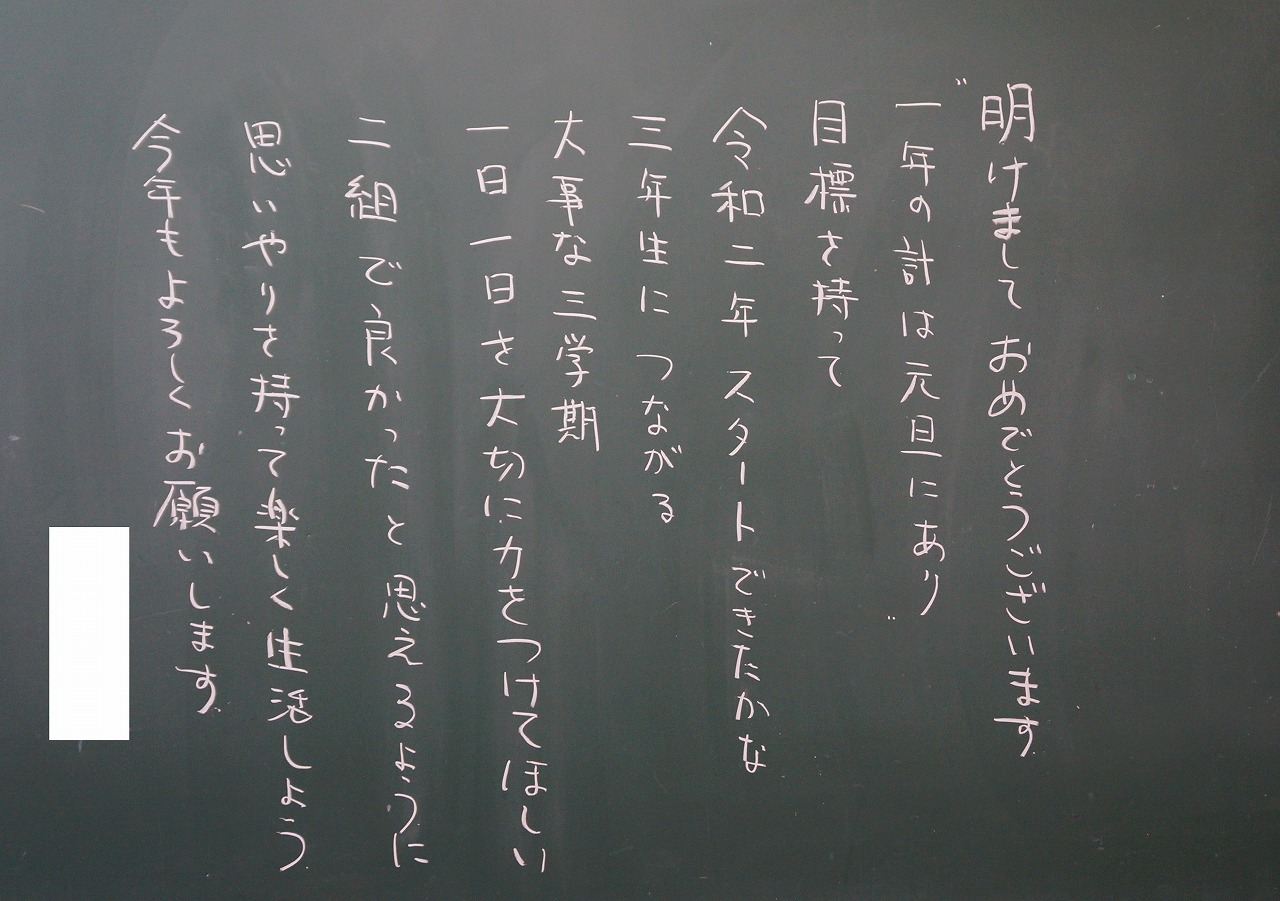 明けましておめでとうございます
"一年の計は元旦にあり"
目標を持って
令和二年 スタートできたかな
三年生に つながる
大事な三学期
一日一日を大切に力をつけてほしい
二組で良かったと思えるように
思いやりを持って楽しく生活しよう
今年もよろしくお願いします